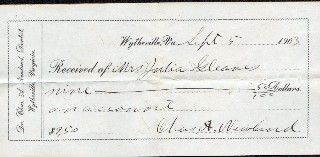 Dr. Chas. A. Newland, Dentist,
Wytheville, Virginia.
Wytheville, Va. Sept 5 1903
Received of Mrs Julia Gleaves
nine 50/100 Dollars.
on account
$9.50 Chas. A. Newland